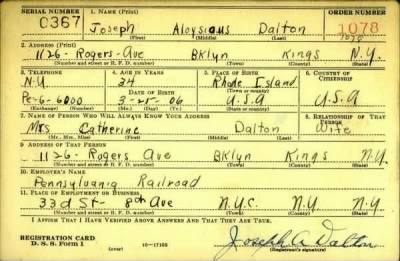 SERIAL NUMBER 1. NAME (Print) ORDER NUMBER
0367 Joseph Aloysious Dalton 1078
(First) (Middle) (Last)
2. ADDRESS (Print)
1126- Rogers- Ave BKlyn Kings N.Y.
(Number and street or R. F. D. number) (Town) (County) (State)
3. TELEPHONE 4. AGE IN YEARS 5. PLACE OF BIRTH 6. COUNTRY OF CITIZENSHIP
N.Y. 34 Rhode Island
DATE OF BIRTH (Town or county)
Pe-6-6000 3-25-06 U.S.A U.S.A
(Exchange) (Number) (Mo.) (Day) (Yr.) (State or country)
7. NAME OF PERSON WHO WILL ALWAYS KNOW YOUR ADDRESS 8. RELATIONSHIP OF THAT PERSON
Mrs Catherine Dalton Wife
(Mr., Mrs., Miss) (First) (Middle) (Last)
9. ADDRESS OF THAT PERSON
1126- Rogers Ave BKlyn Kings N.Y.
(Number and street or R. F. D. number) (Town) (County) (State)
10. EMPLOYER'S NAME
Pennsylvania Railroad
11. PLACE OF EMPLOYMENT OR BUSINESS
33d St- 8th Ave N.Y.C. N.Y N.Y.
(Number and street or R. F. D. number) (Town) (County) (State)
I AFFIRM THAT I HAVE VERIFIED ABOVE ANSWERS AND THAT THEY ARE TRUE.
REGISTRATION CARD
D. S. S. FORM 1 (over) 16—17105 Joseph A Dalton
(Registrant's signature)